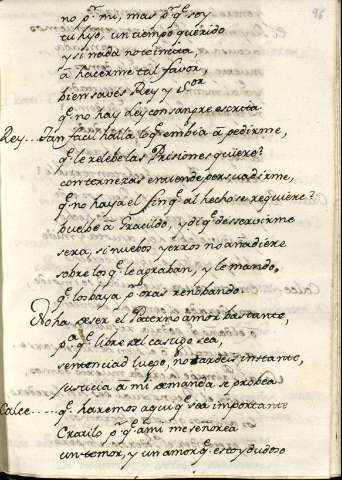 96
no p.ʳ mi, mas p.ʳ q.ᵉ soy
tu hijo, un tiempo querido
y si nada note incita,
a hacerme tal favor,
bien saves Rey y S.ᵒʳ
q.ᵉ no hay ley con sangre escrita
Rey... Tan facil halla lo q.ᵉ embia a pedirme,
q.ᵉ le releve las Prisiones quiere?
con ternezas entiende persuadirme,
q.ᵉ no haya el fin q.ᵉ al hecho se requiere?
buelbe a Cratilo, y di q.ᵉ desservirme
sera, si nuebos yerros no añadiere
sobre los q.ᵉ le agraban, y le mando,
q.ᵉ los vaya p.ʳ oras renobando.
No ha de ser el Paterno amor bastante,
p.ᵃ q.ᵉ libre del castigo sea,
sentenciad luego, no tardeis instante,
justicia a mi demanda se probea
Calce..... q.ᵉ haremos aqui q.ᵉ sea importante
Cratilo p.ʳ q.ᵉ a mi me señorea
un temor, y un amor q.ᵉ estoy dudoso